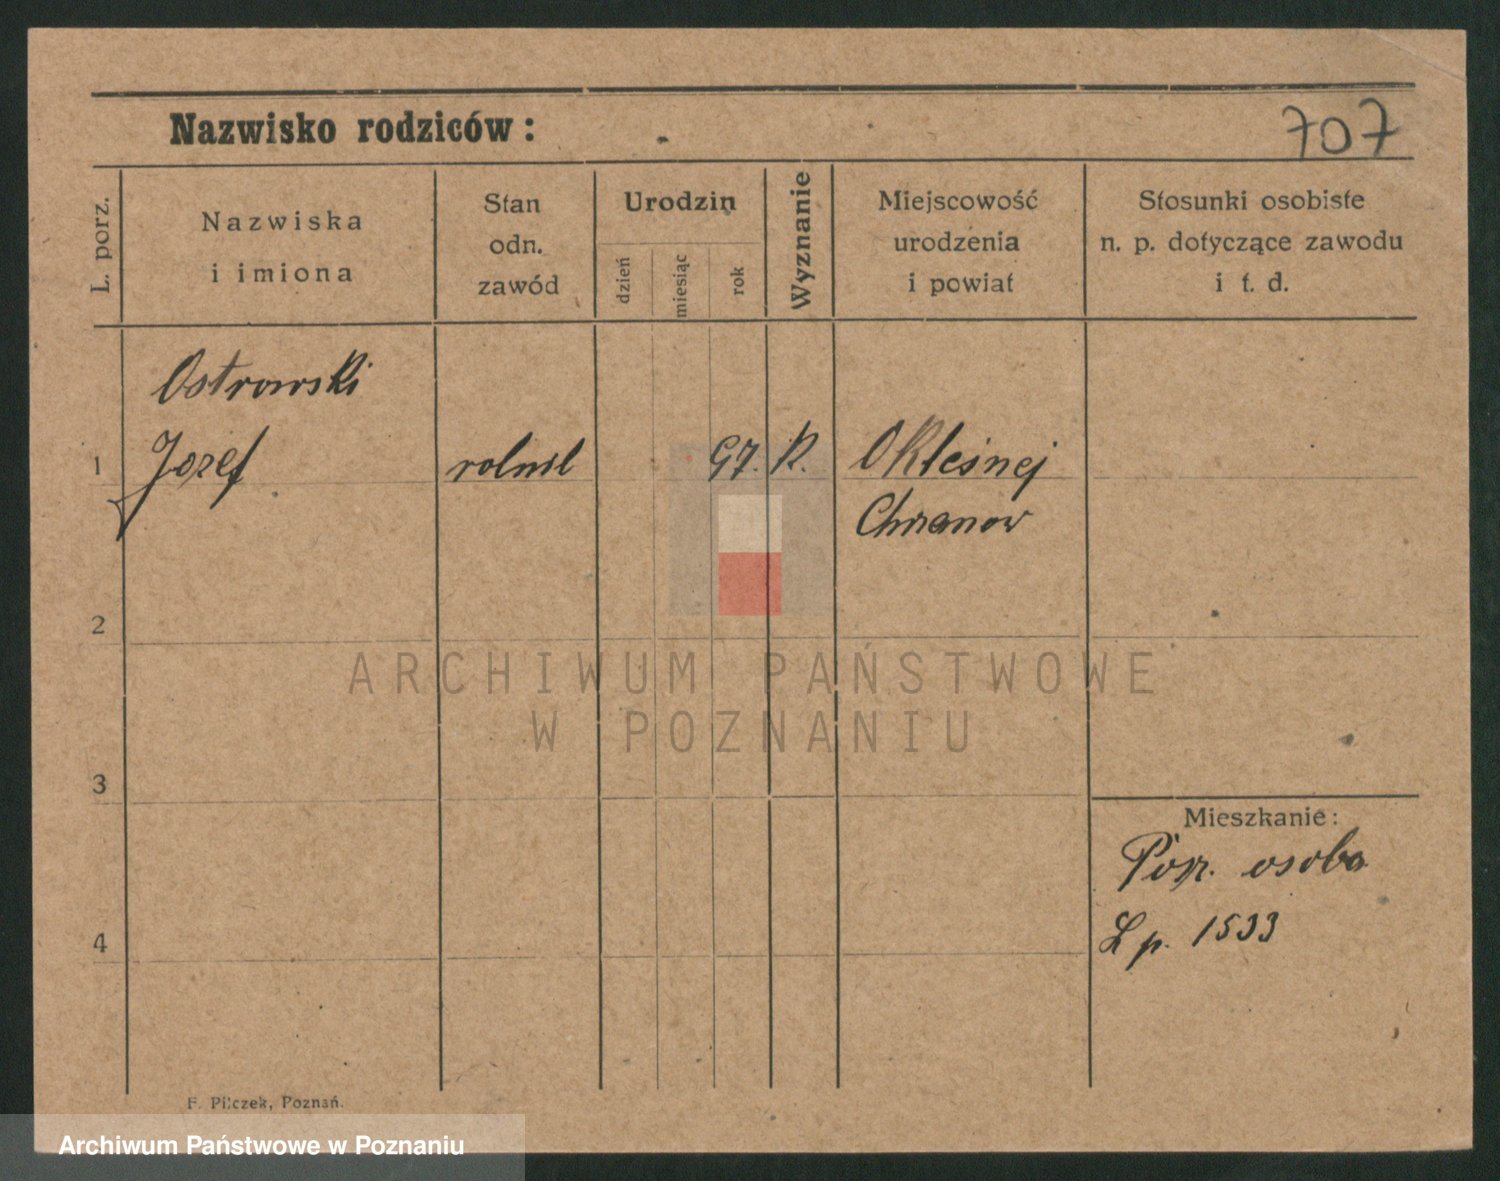 Nazwisko rodziców:
707
L. porz.
Nazwiska
i imiona
Stan
odn.
zawód
Urodzin
dzień
miesiąc
rok
Wyznanie
Miejscowość
urodzenia
i powiat
Stosunki osobiste
n. p. dotyczące zawodu
i t. d.
Ostrowski
1 Jozef rolnik 97. R. Okleśnej
Chrzanow
2
ARCHIWUM PAŃSTWOWE
W POZNANIU
3
Mieszkanie:
osoba
4 L p. 1533
F. Pilczek, Poznań.
Archiwum Państwowe w Poznaniu